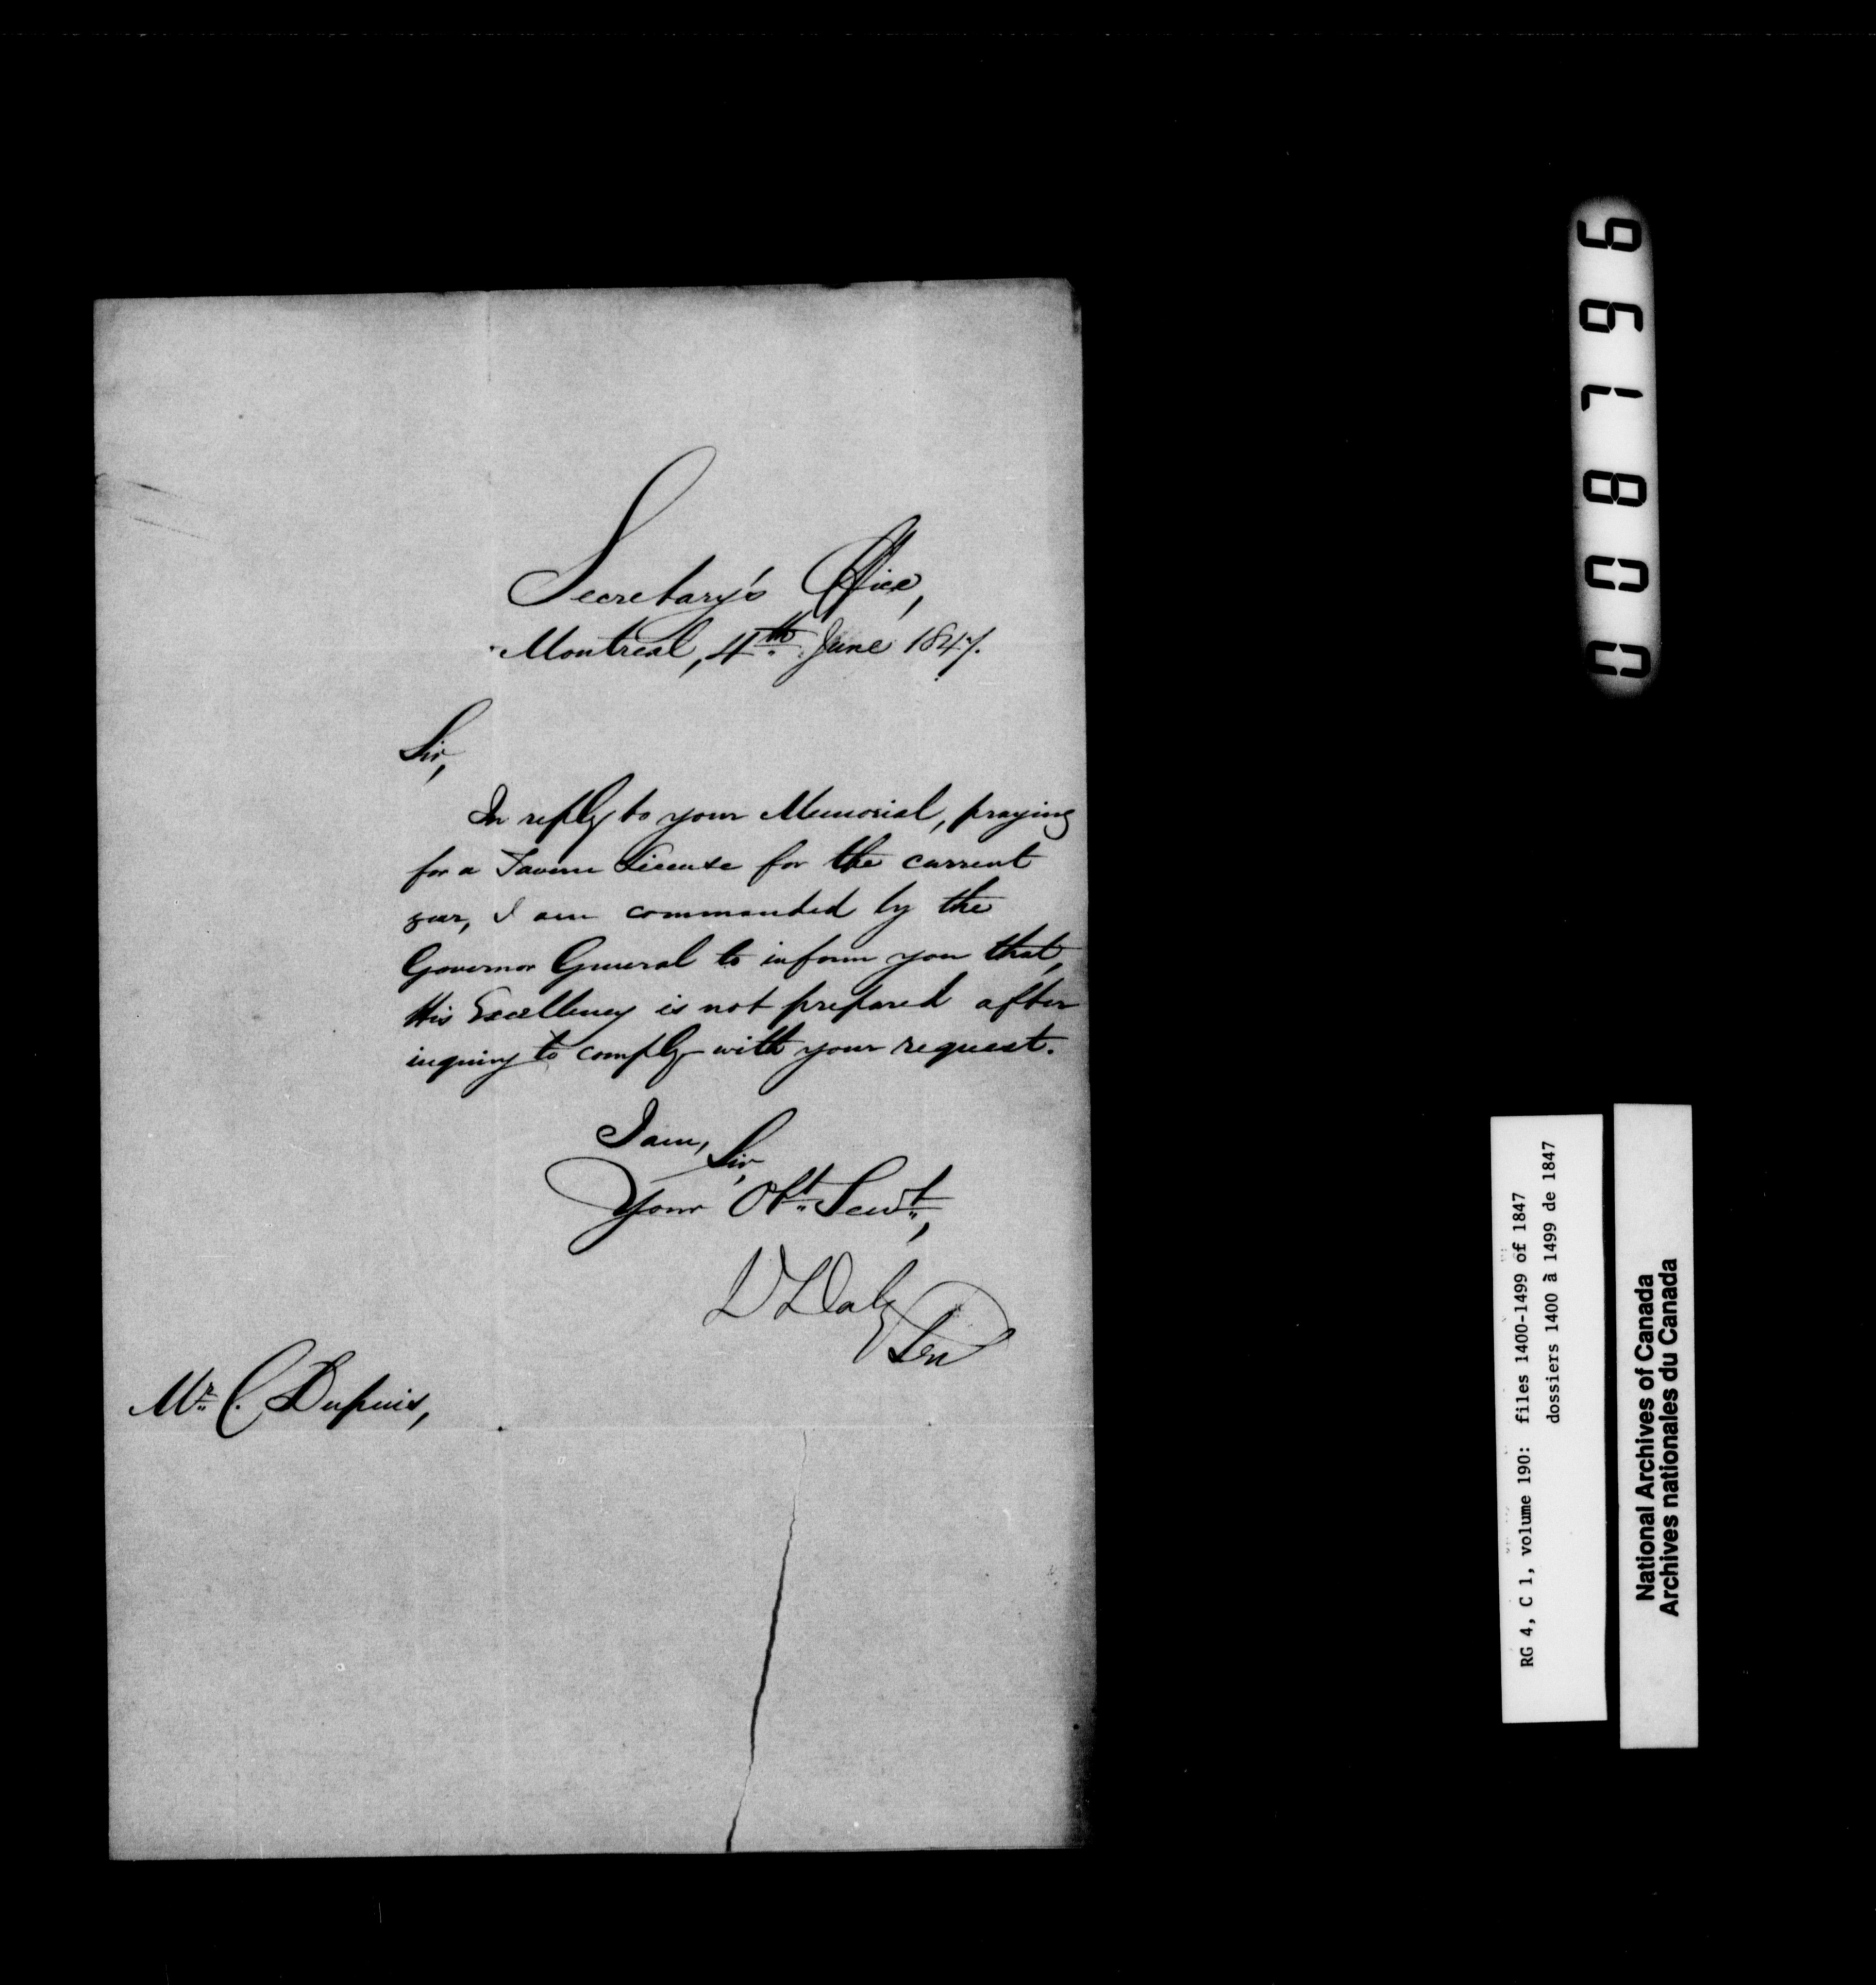 Secretary's Office,
Montreal, 4th June 1847.
Sir,
In reply to your Memorial, praying
for a Tavern License for the current
year, I am commanded by the
Governor General to inform you that,
His Excellency is not prepared after
inquiry to comply with your request.
I am,
Sir,
Your Obt. Servt.,
D Daly
Sec
Mr. C. Dupuis,
008769
RG 4, C 1, volume 190: files 1400-1499 of 1847
dossiers 1400 à 1499 de 1847
National Archives of Canada
Archives nationales du Canada